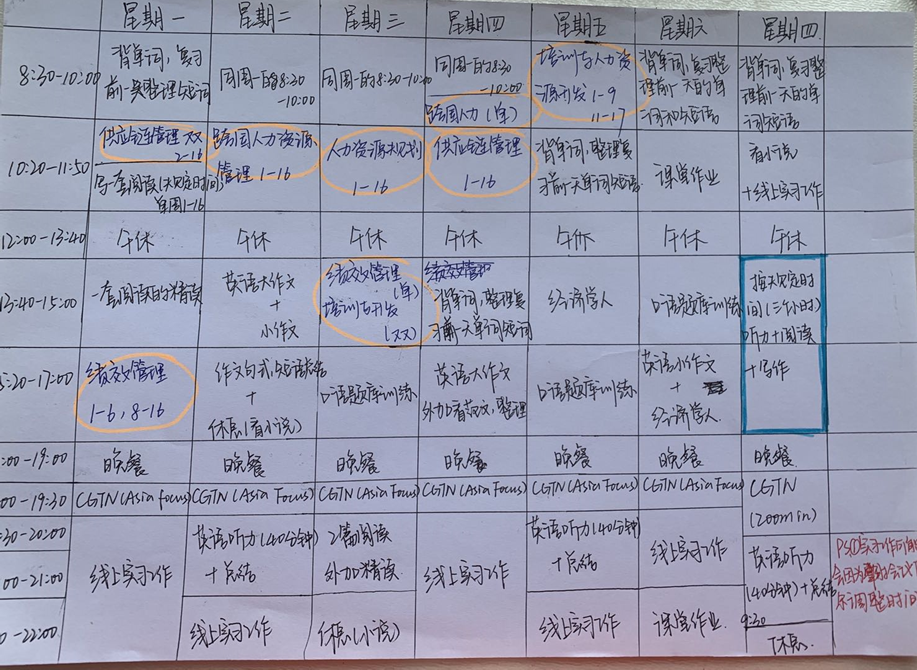 星期一 星期二 星期三 星期四 星期五 星期六 星期四
8:30-10:00
背单词,复习
前一天整理短词
同周一的8:30
-10:00
同周一的8:30-10:00
同周一的8:30
-10:00
跨国人力(单)
培训与人力资
源开发1-9
11-17
背单词,复习整
理前一天的单
词和短语
背单词,复习整
理前一天的单
词短语
10:20-11:50
供应链管理 双
2-16
写一套阅读(规定时间)
单周1-16
跨国人力资源
管理1-16
人力资源规划
1-16
供应链管理
1-16
背单词,整理复
习前一天单词短语
课堂作业
看小说
+线上实习工作
12:00-13:40
午休 午休 午休 午休 午休 午休 午休
13:40-15:00
一套阅读的精读
英语大作文
+
小作文
绩效管理
(单)
培训与开发
(双)
绩效管理
背单词,整理复
习前一天单词短词
经济学人
口语题库训练
按规定时
间(三个小时)
听力+阅读
+写作
5:20-17:00
绩效管理
1-6,8-16
作文句式,短语总结
+
休息(看小说)
口语题库训练
英语大作文
外加看范文,整理
口语题库训练
英语小作文
+
经济学人
:00-19:00
晚餐 晚餐 晚餐 晚餐 晚餐 晚餐 晚餐
:00-19:30
CGTN(Asia Focus) CGTN(Asia Focus) CGTN(Asia Focus) CGTN(Asia Focus) CGTN(Asia Focus) CGTN(Asia Focus)
CGTN
(200min)
:30-20:00
:00-21:00
线上实习工作
英语听力(40分钟)
+总结
2篇阅读
外加精读
线上实习工作
英语听力(40分钟)
+总结
线上实习工作
英语听力
(40分钟)+总结
9:30
0-22:00
线上实习工作
休息(小说)
线上实习工作
课堂作业
休息
PS:实习工作可能
会因为
调整时间